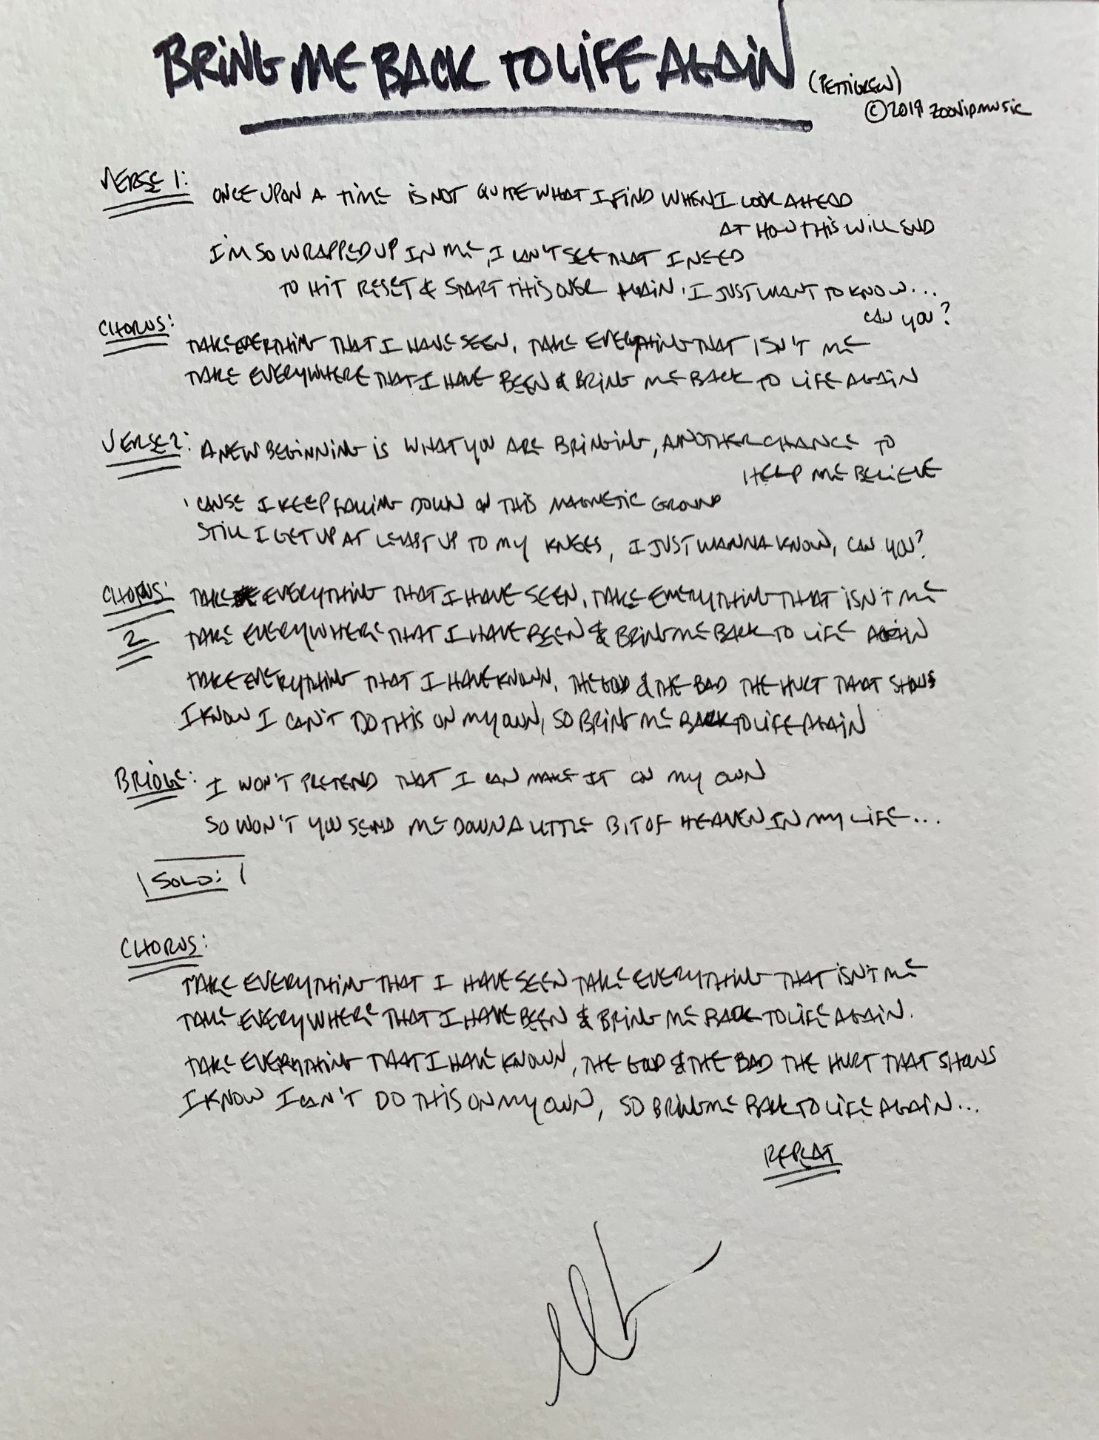 BRING ME BACK TO LIFE AGAIN (PETTIGREW)
©2018 zoovipmusic
VERSE 1: ONCE UPON A TIME IS NOT QUITE WHAT I FIND WHEN I LOOK AHEAD
AT HOW THIS WILL END
I'M SO WRAPPED UP IN ME, I CAN'T SEE THAT I NEED
TO HIT RESET & START THIS OVER AGAIN, I JUST WANT TO KNOW...
CAN YOU?
CHORUS:
TAKE EVERYTHING THAT I HAVE SEEN, TAKE EVERYTHING THAT ISN'T ME
TAKE EVERYWHERE THAT I HAVE BEEN & BRING ME BACK TO LIFE AGAIN
VERSE 2: A NEW BEGINNING IS WHAT YOU ARE BRINGING, ANOTHER CHANCE TO
HELP ME BELIEVE
'CAUSE I KEEP FALLING DOWN ON THIS MAGNETIC GROUND
STILL I GET UP AT LEAST UP TO MY KNEES, I JUST WANNA KNOW, CAN YOU?
CHORUS: TAKE EVERYTHING THAT I HAVE SEEN, TAKE EVERYTHING THAT ISN'T ME
2 TAKE EVERYWHERE THAT I HAVE BEEN & BRING ME BACK TO LIFE AGAIN
TAKE EVERYTHING THAT I HAVE KNOWN, THE GOOD & THE BAD THE HURT THAT SHOWS
I KNOW I CAN'T DO THIS ON MY OWN, SO BRING ME BACK TO LIFE AGAIN
BRIDGE: I WON'T PRETEND THAT I CAN MAKE IT ON MY OWN
SO WON'T YOU SEND ME DOWN A LITTLE BIT OF HEAVEN IN MY LIFE...
SOLO:
CHORUS:
TAKE EVERYTHING THAT I HAVE SEEN TAKE EVERYTHING THAT ISN'T ME
TAKE EVERYWHERE THAT I HAVE BEEN & BRING ME BACK TO LIFE AGAIN.
TAKE EVERYTHING THAT I HAVE KNOWN, THE GOOD & THE BAD THE HURT THAT SHOWS
I KNOW I CAN'T DO THIS ON MY OWN, SO BRING ME BACK TO LIFE AGAIN...
REPEAT